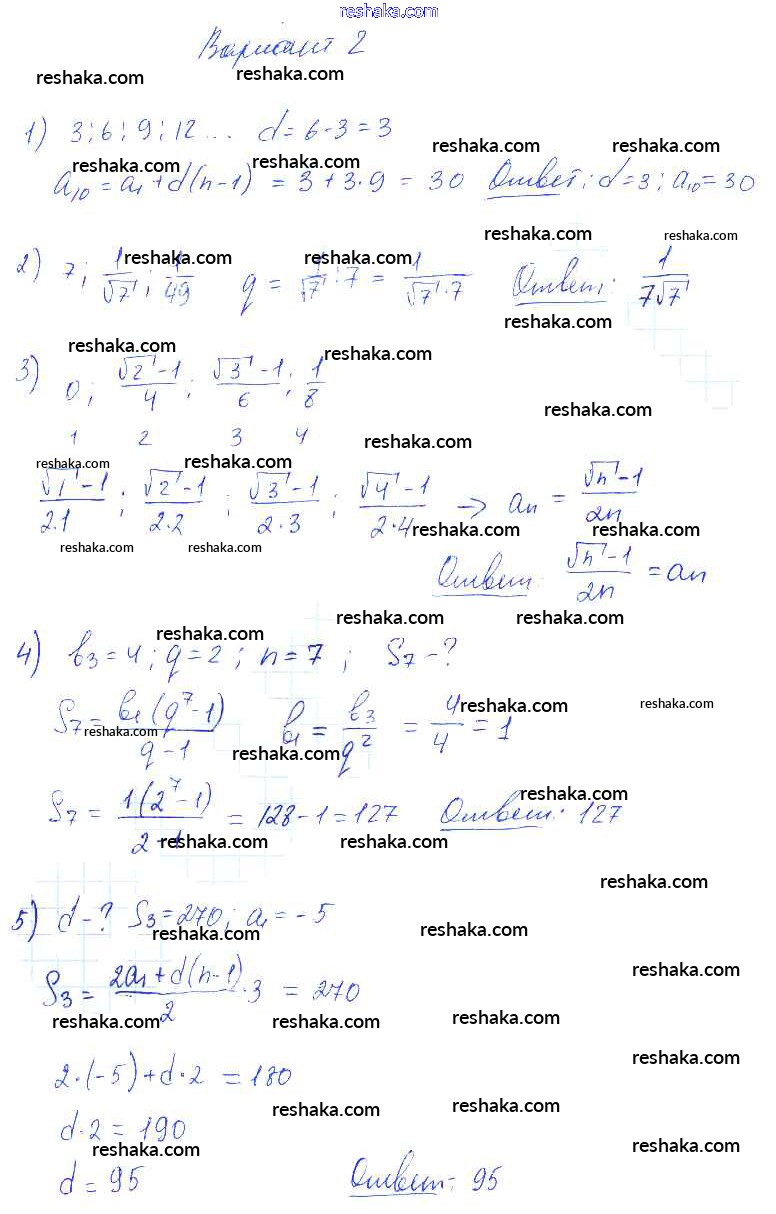 reshaka.com
Вариант 2
reshaka.com reshaka.com
1) 3; 6; 9; 12 ... d = 6 - 3 = 3
reshaka.com reshaka.com reshaka.com reshaka.com
a₁₀ = a₁ + d(n-1) = 3 + 3·9 = 30 Ответ: d = 3; a₁₀ = 30
reshaka.com reshaka.com reshaka.com reshaka.com
2) 7; 1/√7; 1/49 q = 1/√7 : 7 = 1/(√7·7) Ответ: 1/(7√7)
reshaka.com
reshaka.com reshaka.com
3) 0; (√2-1)/4; (√3-1)/6; 1/8
reshaka.com
1 2 3 4
reshaka.com
reshaka.com reshaka.com
(√1-1)/(2·1); (√2-1)/(2·2); (√3-1)/(2·3); (√4-1)/(2·4) → aₙ = (√n-1)/(2n)
reshaka.com reshaka.com
reshaka.com reshaka.com
Ответ: (√n-1)/(2n) = aₙ
reshaka.com reshaka.com reshaka.com
4) b₃ = 4; q = 2; n = 7; S₇ - ?
reshaka.com reshaka.com
S₇ = b₁(q⁷-1)/(q-1) b₁ = b₃/q² = 4/4 = 1
reshaka.com reshaka.com
reshaka.com
S₇ = 1(2⁷-1)/(2-1) = 128 - 1 = 127 Ответ: 127
reshaka.com reshaka.com reshaka.com
reshaka.com
5) d - ? S₃ = 270; a₁ = -5
reshaka.com reshaka.com
reshaka.com
S₃ = (2a₁ + d(n-1))/2 · 3 = 270
reshaka.com reshaka.com reshaka.com
reshaka.com
2·(-5) + d·2 = 180
reshaka.com reshaka.com
d·2 = 190
reshaka.com reshaka.com
d = 95 Ответ: 95